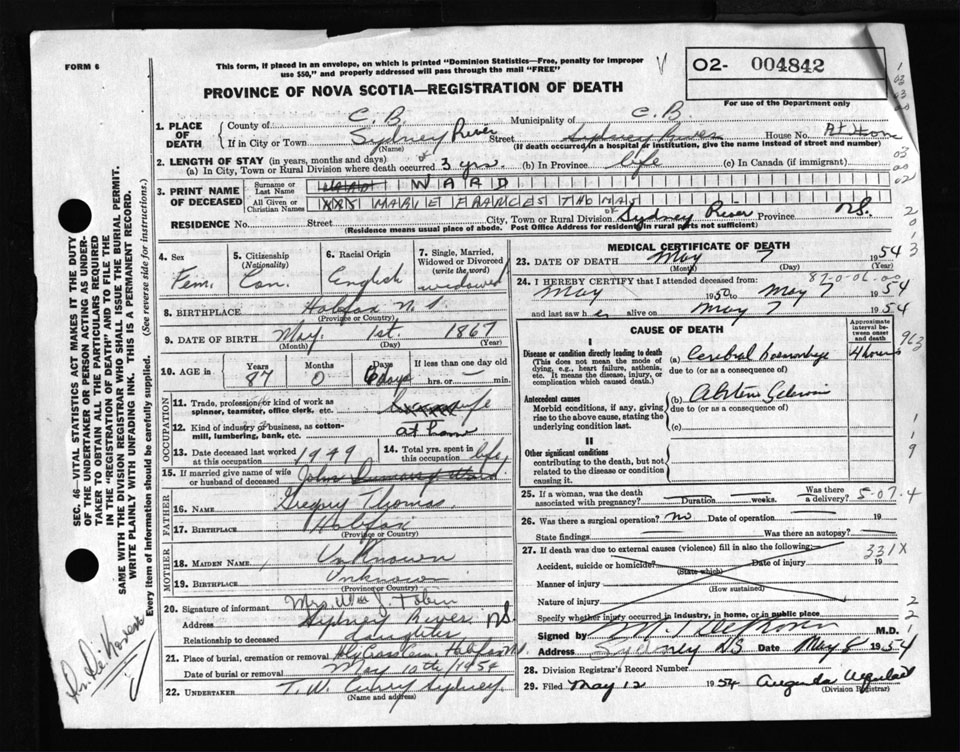 FORM 6
This form, if placed in an envelope, on which is printed "Dominion Statistics—Free, penalty for improper
use $50," and properly addressed will pass through the mail "FREE"
02- 004842
For use of the Department only
PROVINCE OF NOVA SCOTIA—REGISTRATION OF DEATH
1. PLACE OF DEATH
County of C.B. Municipality of C.B.
If in City or Town Sydney River Street Sydney River House No. At Home
(Name) (If death occurred in a hospital or institution, give the name instead of street and number)
2. LENGTH OF STAY (in years, months and days)
(a) In City, Town or Rural Division where death occurred 3 yrs. (b) In Province life (c) In Canada (if immigrant)
3. PRINT NAME OF DECEASED
Surname or Last Name WARD
All Given or Christian Names MARIE FRANCES THOMAS
RESIDENCE No. Street City, Town or Rural Division of Sydney River Province N.S.
(Residence means usual place of abode. Post Office Address for residents in rural parts not sufficient)
4. Sex Fem.
5. Citizenship (Nationality) Can.
6. Racial Origin English
7. Single, Married, Widowed or Divorced (write the word) widowed
8. BIRTHPLACE Halifax N.S.
(Province or Country)
9. DATE OF BIRTH May 1st. 1867
(Month) (Day) (Year)
10. AGE in Years 87 Months 0 Days 6 days If less than one day old hrs. or min.
OCCUPATION
11. Trade, profession or kind of work as spinner, teamster, office clerk, etc.
12. Kind of industry or business, as cotton-mill, lumbering, bank, etc. at home
13. Date deceased last worked at this occupation 1949
14. Total yrs. spent in this occupation life
15. If married give name of wife or husband of deceased John Ward
FATHER
16. Name Gregory Thomas
17. Birthplace Halifax
(Province or Country)
MOTHER
18. MAIDEN NAME Unknown
19. BIRTHPLACE Unknown
(Province or Country)
20. Signature of informant Mrs Wm J Tobin
Address Sydney River NS
Relationship to deceased daughter
21. Place of burial, cremation or removal Holy Cross Cem. Halifax NS
Date of burial or removal May 10th/1954
22. UNDERTAKER T. W. Curry Sydney.
(Name and address)
MEDICAL CERTIFICATE OF DEATH
23. DATE OF DEATH May 7 1954
(Month) (Day) (Year)
87-0-06
24. I HEREBY CERTIFY that I attended deceased from:
May 1950 to May 1954
and last saw her alive on May 7 1954
CAUSE OF DEATH
Approximate interval between onset and death
I
Disease or condition directly leading to death (a) Cerebral hoemorrhage 4 hours
(This does not mean the mode of dying, e.g., heart failure, asthenia, etc. It means the disease, injury, or complication which caused death.)
due to (or as a consequence of)
Antecedent causes (b)
Morbid conditions, if any, giving rise to the above cause, stating the underlying condition last.
due to (or as a consequence of)
(c)
II
Other significant conditions
contributing to the death, but not related to the disease or condition causing it.
25. If a woman, was the death associated with pregnancy? Duration weeks. Was there a delivery?
5-07.4
26. Was there a surgical operation? no Date of operation 19
State findings Was there an autopsy?
27. If death was due to external causes (violence) fill in also the following:—
331X
Accident, suicide or homicide? Date of injury 19
(State which)
Manner of injury
(How sustained)
Nature of injury
Specify whether injury occurred in industry, in home, or in public place
Signed by M.D.
Address Sydney NS Date May 8 1954
28. Division Registrar's Record Number
29. Filed May 12 1954
(Division Registrar)
SEC. 46—VITAL STATISTICS ACT MAKES IT THE DUTY
OF THE UNDERTAKER OR PERSON ACTING AS UNDER-
TAKER TO OBTAIN ALL THE PARTICULARS REQUIRED
IN THE "REGISTRATION OF DEATH" AND TO FILE THE
SAME WITH THE DIVISION REGISTRAR WHO SHALL ISSUE THE BURIAL PERMIT.
WRITE PLAINLY WITH UNFADING INK. THIS IS A PERMANENT RECORD.
Every item of information should be carefully supplied. (See reverse side for instructions.)